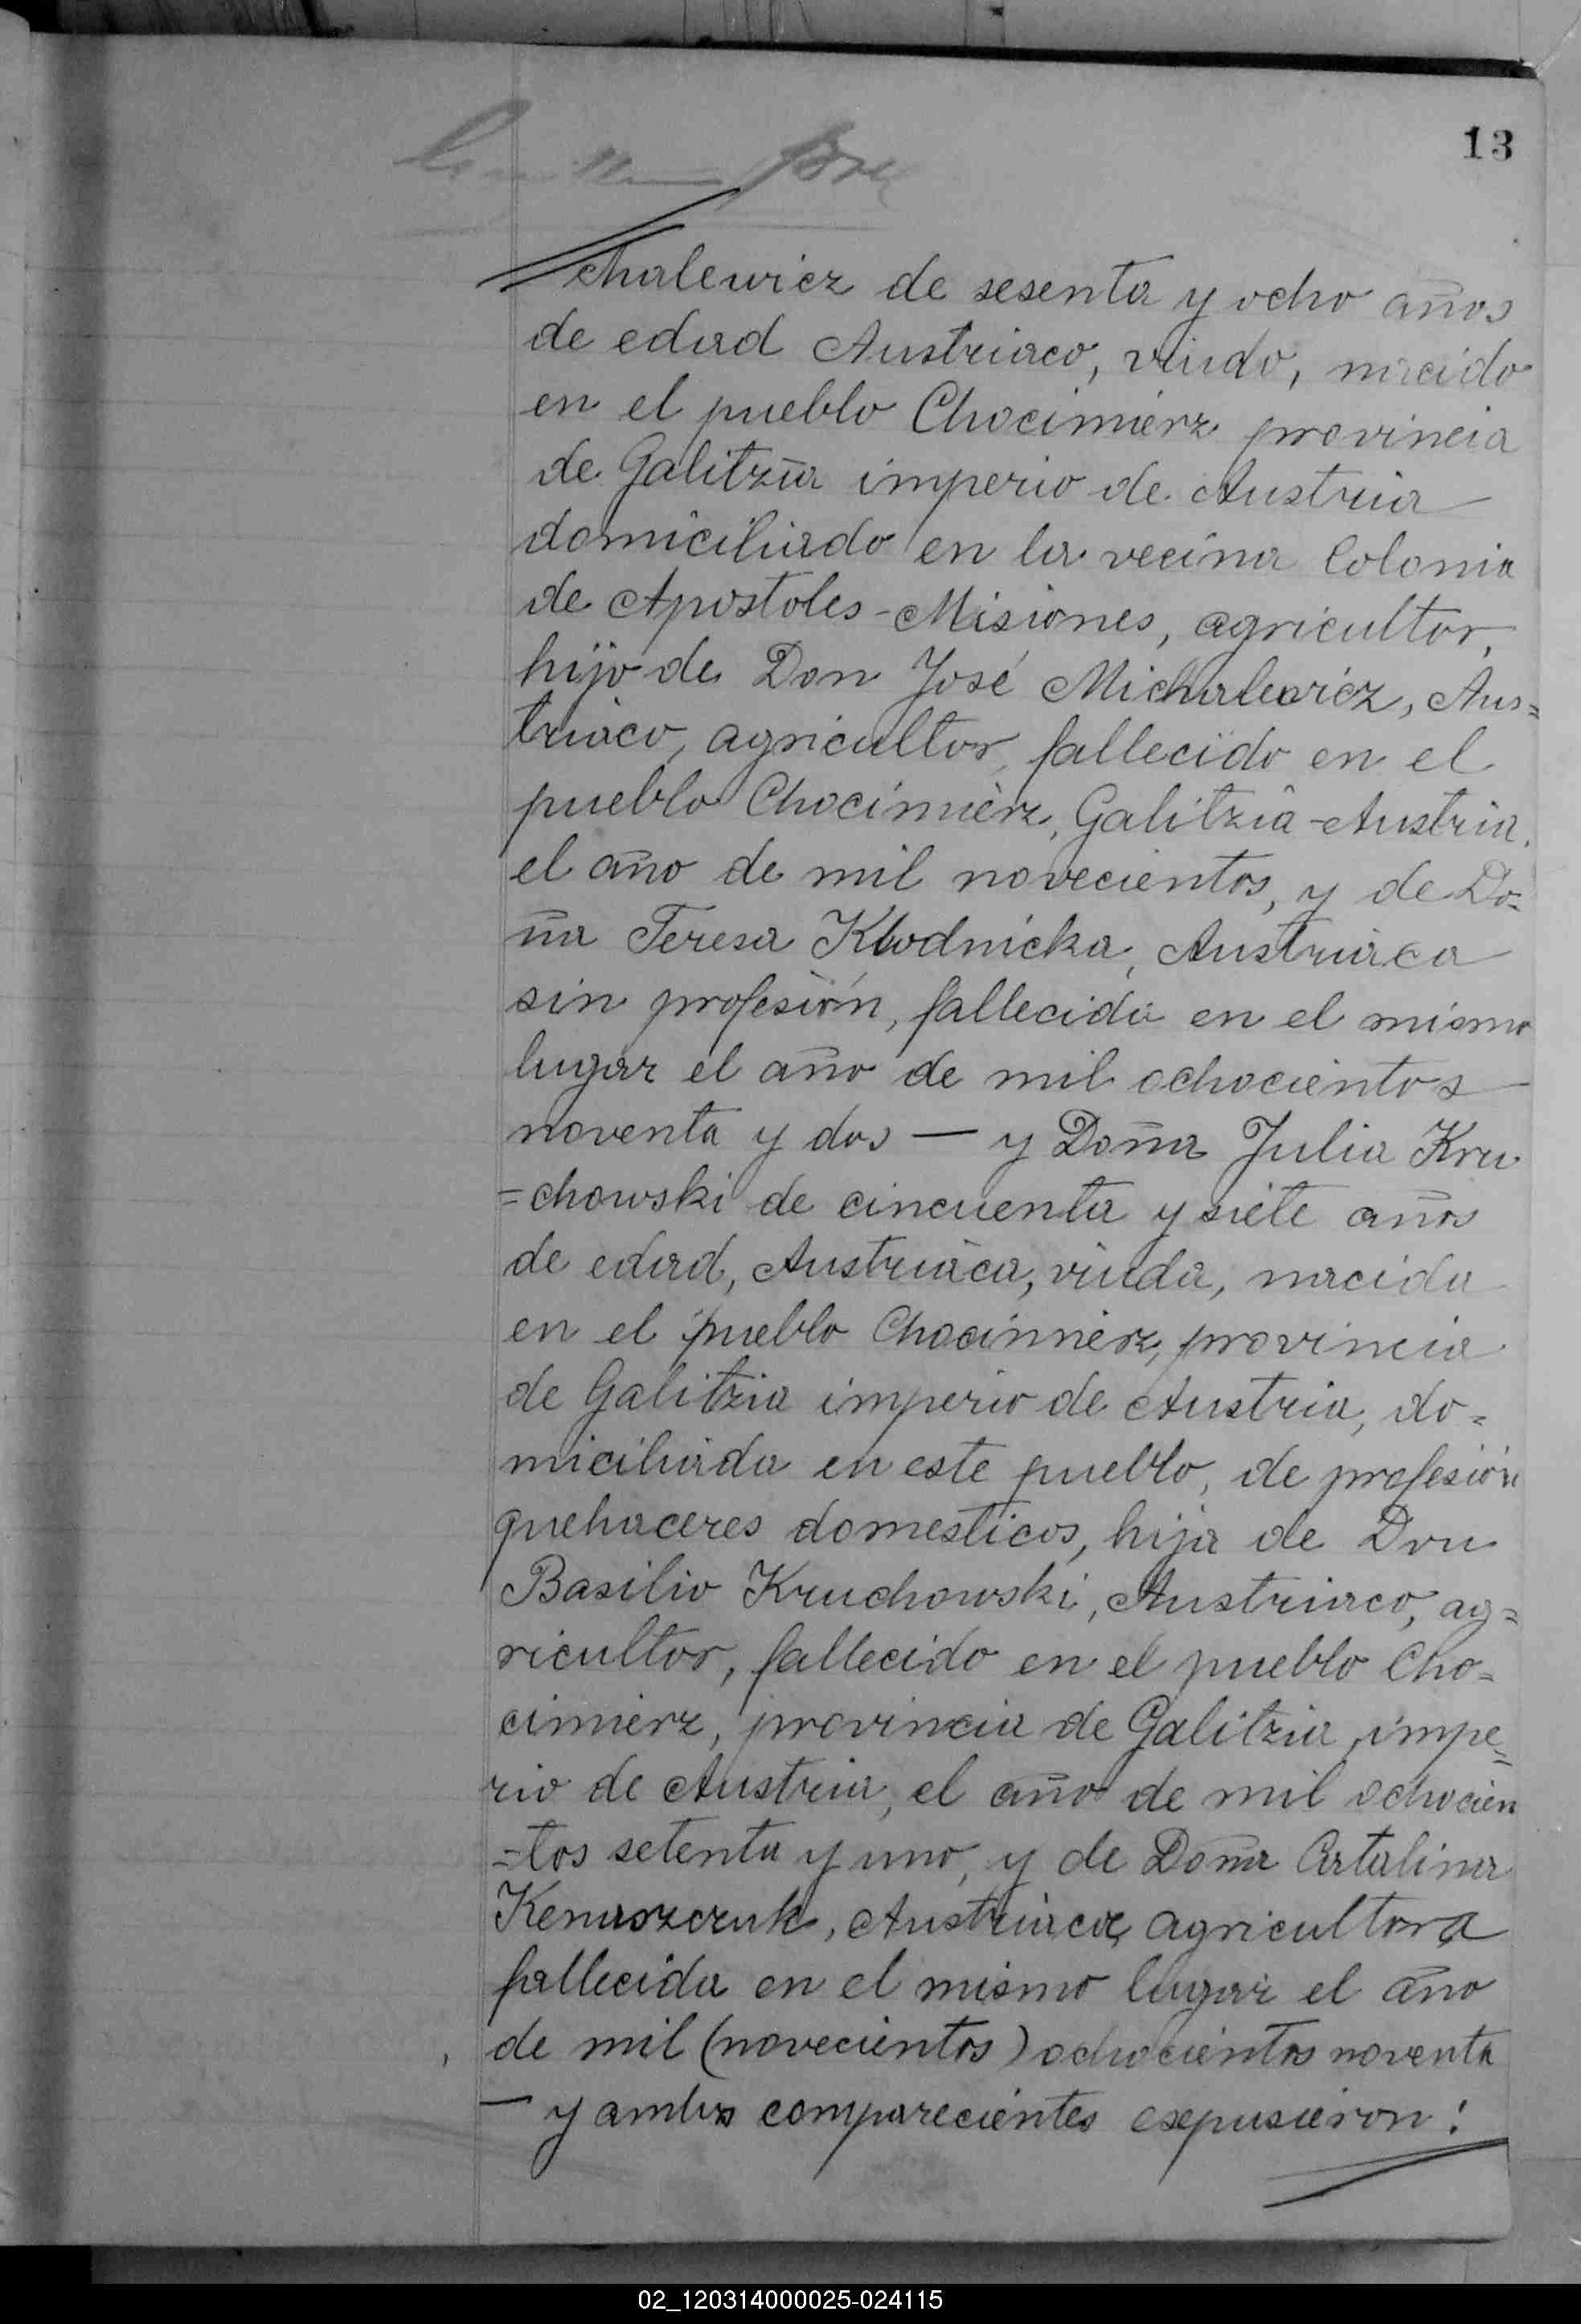 13
chalewicz de sesenta y ocho años
de edad Austriaco, viudo, nacido
en el pueblo Chocimierz provincia
de Galitzia imperio de Austria
domiciliado en la vecina Colonia
de Apostoles - Misiones, agricultor,
hijo de Don José Michalewicz, Aus=
triaco, agricultor, fallecido en el
pueblo Chocimierz, Galitzia - Austria,
el año de mil novecientos, y de Do=
ña Teresa Klodnicka, Austriaca
sin profesión, fallecida en el mismo
lugar el año de mil ochocientos
noventa y dos — y Doña Julia Kru
=chowski de cincuenta y siete años
de edad, Austriaca, viuda, nacida
en el pueblo Chocimierz, provincia
de Galitzia imperio de Austria, do=
miciliada en este pueblo, de profesión
quehaceres domesticos, hija de Don
Basilio Kruchowski, Austriaco, ag=
ricultor, fallecido en el pueblo Cho=
cimierz, provincia de Galitzia, impe=
rio de Austria, el año de mil ochocien
=tos setenta y uno, y de Doña Catalina
Kenaszczuk, Austriaca, agricultora
fallecida en el mismo lugar el año
de mil (novecientos) ochocientos noventa
— y ambos comparecientes expusieron:
02_120314000025-024115